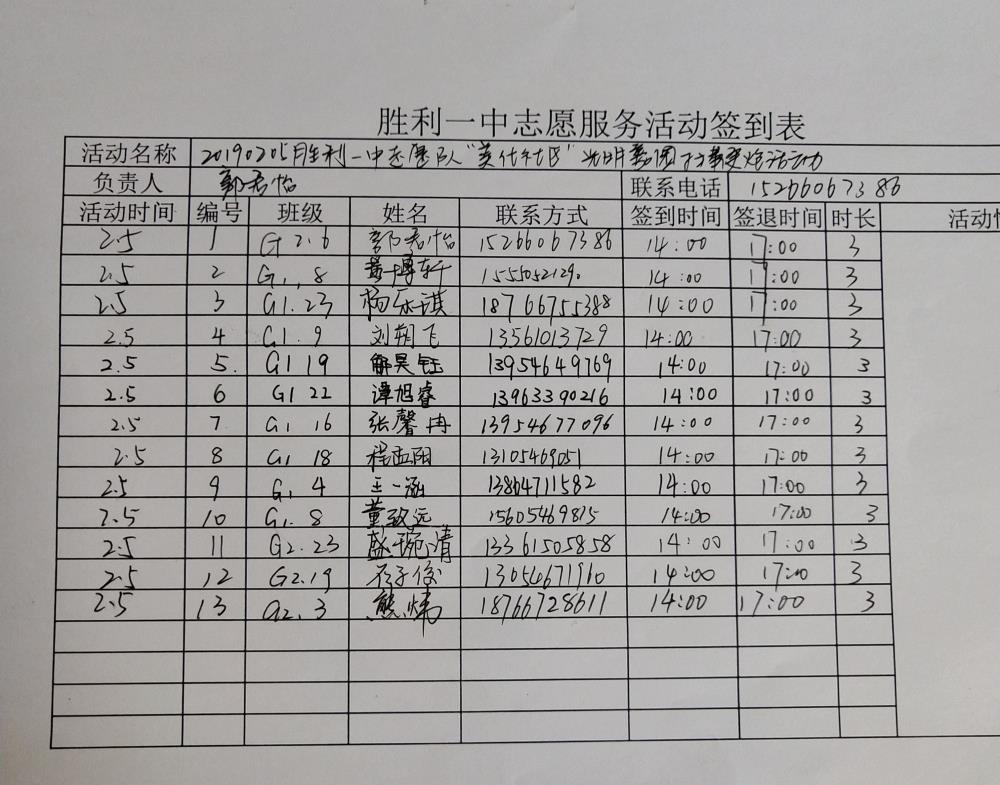 胜利一中志愿服务活动签到表
活动名称 20190205胜利一中志愿队"英仕社区"光明嘉园打扫鞭炮活动
负责人 郭君怡 联系电话 15266067386
活动时间 编号 班级 姓名 联系方式 签到时间 签退时间 时长 活动情
2.5 1 G2.6 郭君怡 15266067386 14:00 17:00 3
2.5 2 G1,8 黄博轩 1555052129. 14:00 17:00 3
2.5 3 G1.23 杨乐琪 18766755388 14:00 17:00 3
2.5 4 G1.9 刘朝飞 13561013729 14:00 17:00 3
2.5 5. G1 19 解昊钰 13954649769 14:00 17:00 3
2.5 6 G1 22 谭旭睿 13963390216 14:00 17:00 3
2.5 7 G1 16 张馨冉 13954677096 14:00 17:00 3
2.5 8 G1 18 程孟阳 13105469051 14:00 17:00 3
2.5 9 G1 4 王一涵 13864711582 14:00 17:00 3
2.5 10 G1.8 董致远 15605469815 14:00 17:00 3
2.5 11 G2.23 盛琬清 13361505858 14:00 17:00 3
2.5 12 G2.19 石子俊 13054671910 14:00 17:00 3
2.5 13 G2.3 熊炜 18766728611 14:00 17:00 3